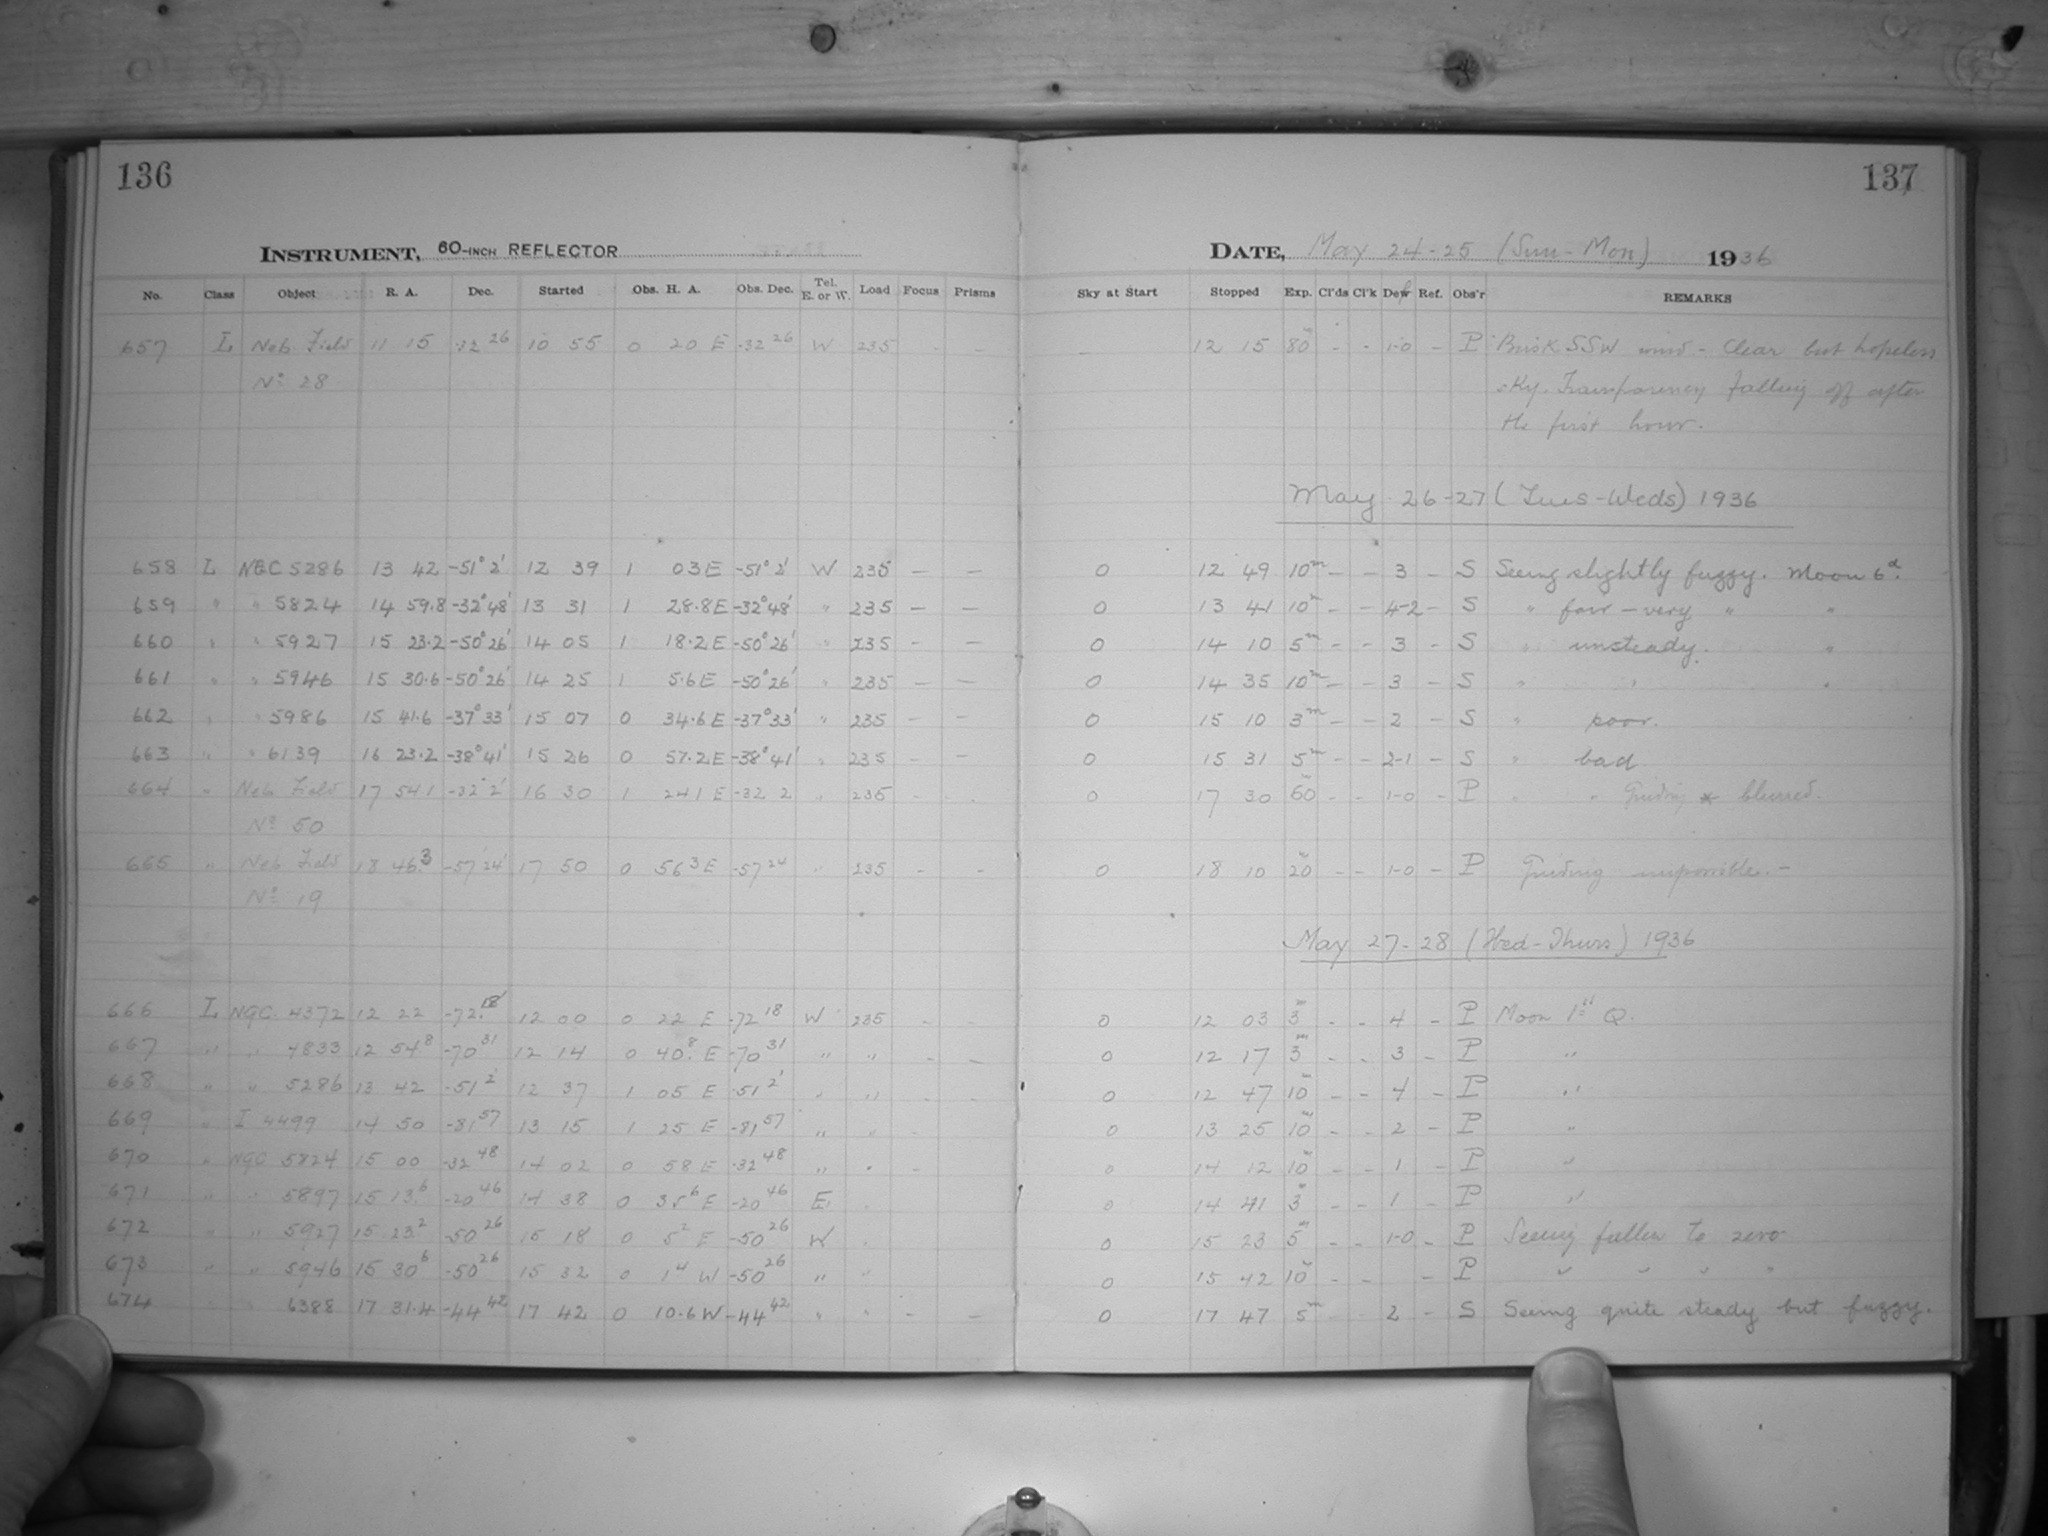 136
137
INSTRUMENT, 60-INCH REFLECTOR
DATE, May 24-25 (Sun-Mon) 1936
No. Class Object R. A. Dec. Started Obs. H. A. Obs. Dec. Tel. E. or W. Load Focus Prisms Sky at Start Stopped Exp. Cl'ds Cl'k Def Ref. Obs'r REMARKS
657 L Neb. Field 11 15 -32 26 10 55 0 20 E -32 26 W 235 - - — 12 15 80m - - 1-0 - P Brisk SSW wind - Clear but hopeless
Nº 28 sky. Transparency falling off after
the first hour.
May 26-27 (Tues-Weds) 1936
658 L NGC 5286 13 42 -51° 2' 12 39 1 03 E -51° 2' W 235 — — 0 12 49 10m - - 3 - S Seeing slightly fuzzy. Moon 6d.
659 " " 5824 14 59.8 -32° 48' 13 31 1 28.8 E -32° 48' " 235 — — 0 13 41 10m - - 4-2 - S " fair - very " "
660 " " 5927 15 23.2 -50° 26' 14 05 1 18.2 E -50° 26' " 235 — — 0 14 10 5m - - 3 - S " unsteady. "
661 " " 5946 15 30.6 -50° 26' 14 25 1 5.6 E -50° 26' " 235 — — 0 14 35 10m - - 3 - S " " "
662 " " 5986 15 41.6 -37° 33' 15 07 0 34.6 E -37° 33' " 235 — — 0 15 10 3m - - 2 - S " poor.
663 " " 6139 16 23.2 -38° 41' 15 26 0 57.2 E -38° 41' " 235 — — 0 15 31 5m - - 2-1 - S " bad
664 " Neb. Field 17 54 1 -32° 2' 16 30 1 24 1 E -32 2 " 235 - - 0 17 30 60m - - 1-0 - P " " Guiding * blurred.
Nº 50
665 " Neb. Field 18 46.3 -57 24' 17 50 0 56 3 E -57 24 " 235 - - 0 18 10 20m - - 1-0 - P Guiding impossible. -
Nº 19
May 27-28 (Wed-Thurs) 1936
666 L NGC. 4372 12 22 -72.18' 12 00 0 22 E -72 18 W 235 - - 0 12 03 3m - - 4 - P Moon 1st Q.
667 " " 4833 12 54 8 -70 31 12 14 0 40.8 E -70 31 " " - - 0 12 17 3m - - 3 - P "
668 " " 5286 13 42 -51 2' 12 37 1 05 E -51 2' " " - - 0 12 47 10m - - 4 - P "
669 " I 4499 14 50 -81 57 13 15 1 25 E -81 57 " " - 0 13 25 10m - - 2 - P "
670 " NGC 5824 15 00 -32 48 14 02 0 58 E -32 48 " " - 0 14 12 10m - - 1 - P "
671 " " 5897 15 13.6 -20 46 14 38 0 35 6 E -20 46 E. " 0 14 41 3m - - 1 - P "
672 " " 5927 15 23 2 -50 26 15 18 0 5 2 E -50 26 W " 0 15 23 5m - - 1-0 - P Seeing fallen to zero
673 " " 5946 15 30 6 -50 26 15 32 0 1 4 W -50 26 " " 0 15 42 10m - - - P " " " "
674 " " 6388 17 31.4 -44 42 17 42 0 10.6 W -44 42 " " - — 0 17 47 5m 2 - S Seeing quite steady but fuzzy.